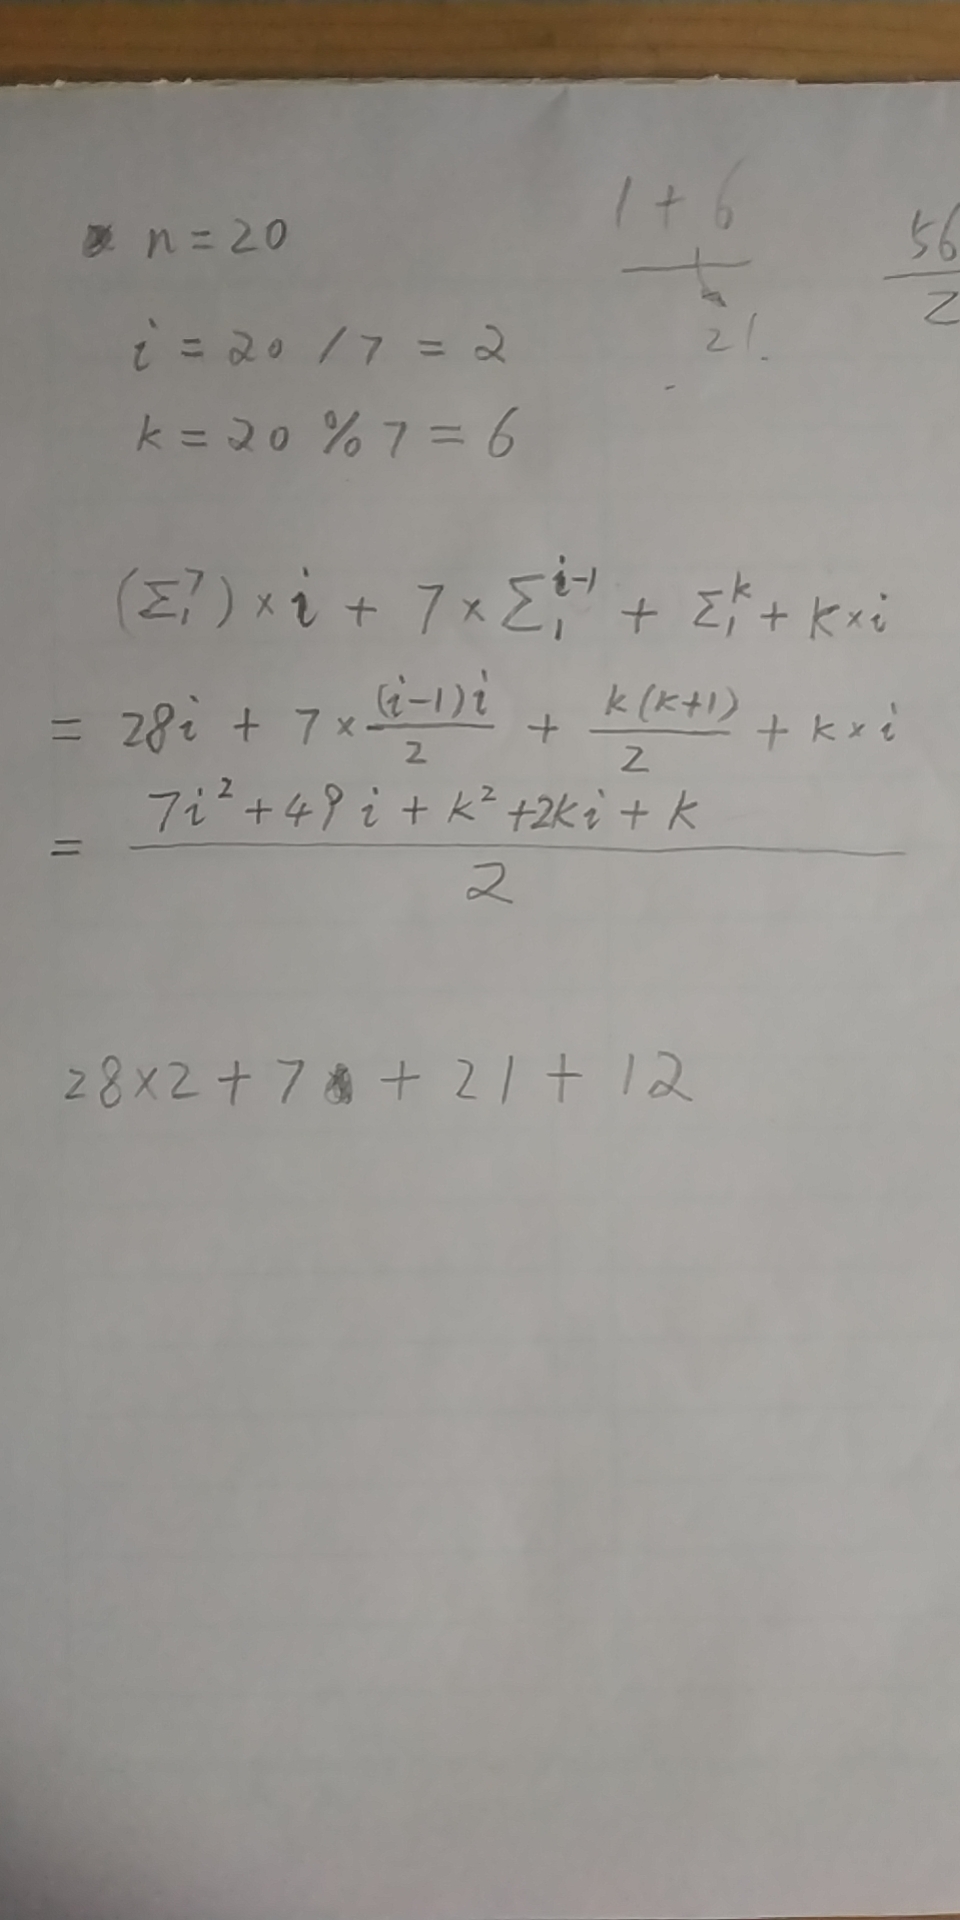 n = 20
1 + 6
21.
56
2
i = 20 / 7 = 2
k = 20 % 7 = 6
(Σ₁⁷) × i + 7 × Σ₁ⁱ⁻¹ + Σ₁ᵏ + k × i
= 28i + 7 × (i-1)i/2 + k(k+1)/2 + k × i
= (7i² + 49i + k² + 2ki + k)/2
28×2 + 7 + 21 + 12